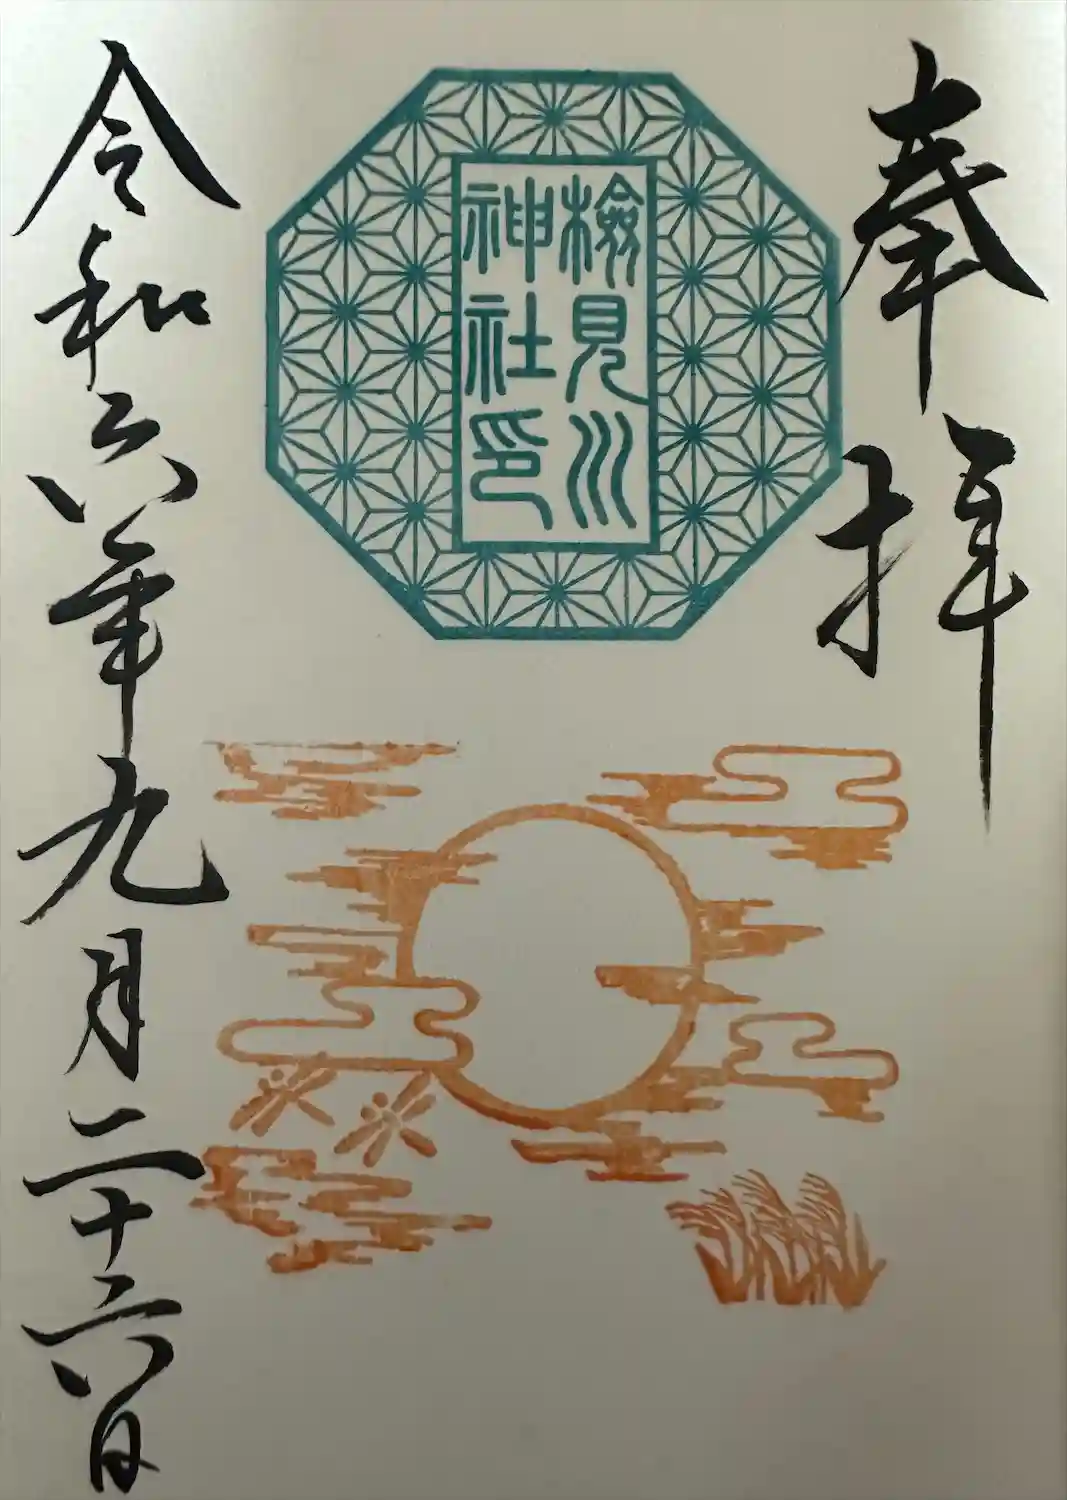 奉拝
檢見川
神社印
令和六年九月二十六日